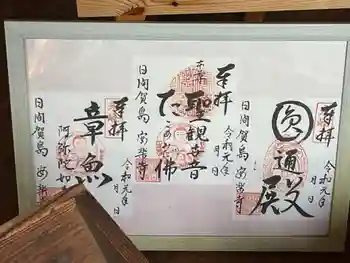 奉拝
圓通殿
令和元年 月 日
日間賀島 安楽寺
奉拝
本尊
聖観音
たこあみだ佛
令和元年 月 日
日間賀島 安楽寺
奉拝
章魚
阿弥陀如
令和元年 月 日
日間賀島 安楽寺